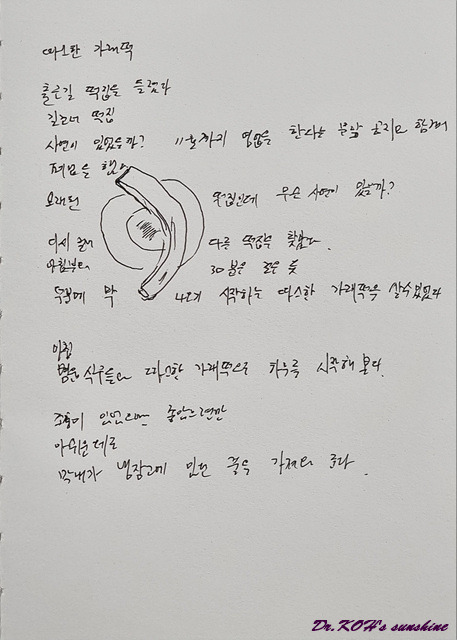 따스한 가래떡
출근길 떡집을 들렸다
길건너 떡집
사연이 있었을까? 11월까지 영업을 한다는 푯말 공지와 함께
폐업을 했다
오래된 떡집인데 무슨 사연이 있을까?
다시 걸어 다른 떡집을 찾았다.
아침부터 30분을 걸은 듯
덕분에 막 나오기 시작하는 따스한 가래떡을 살 수 있었다
아침
병원식구들과 따스한 가래떡으로 하루를 시작해 본다.
조청이 있었으면 좋았으련만
아쉬운대로
막내가 냉장고에 있던 꿀을 가져와 준다.
Dr.KOH's sunshine